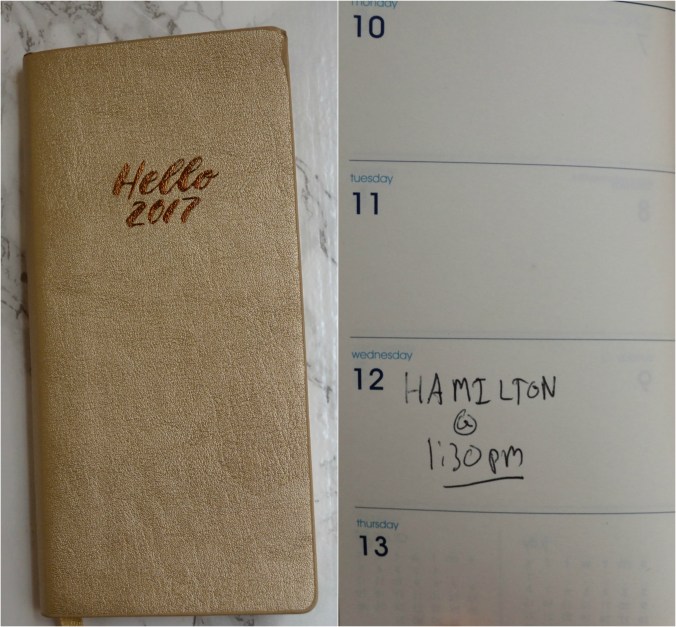 Hello
2017
monday
10
tuesday
11
wednesday
12
HAMILTON
@
1:30pm
thursday
13